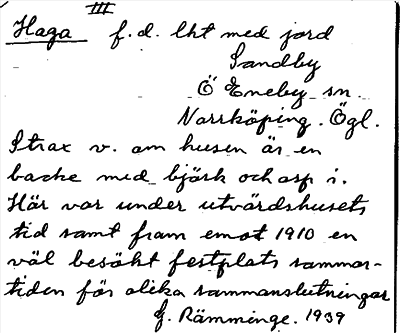 III
Haga f.d. lht med jord
Sandby
Ö Eneby sn.
Norrköping. Ögl.
Strax v. om husen är en
backe med björk och asp i.
Här var under utvärdshusets
tid samt fram emot 1910 en
väl besökt festplats sommar-
tiden för olika sammanslutningar
G. Rämminge. 1939